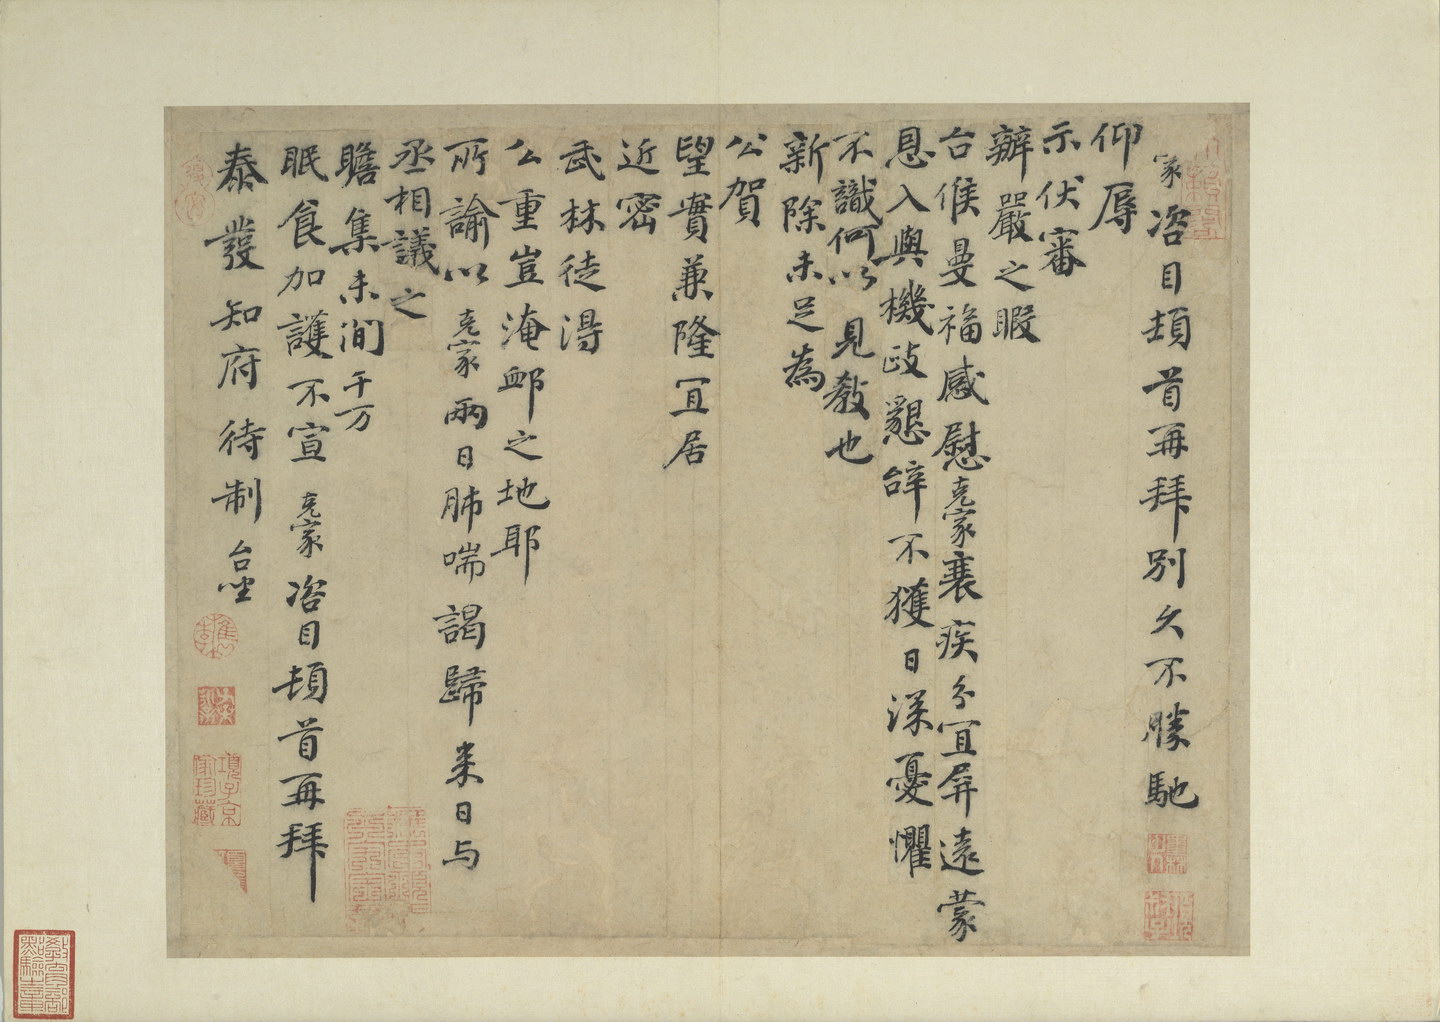 家咨目頓首再拜別久不勝馳
仰辱
示伏審
辦嚴之暇
台候曼福感慰克家衰疾分宜屏遠蒙
恩入輿機政懇辭不獲日深憂懼
不識何以見教也
新除未足為
公賀
望實兼隆宜居
近密
武林徒得
公重豈淹卹之地耶
所諭以克家兩日肺喘謁歸來日与
丞相議之
瞻集未間千万
眠食加護不宣克家咨目頓首再拜
泰發知府待制台坐
項子京家珍藏
教育部點驗之章